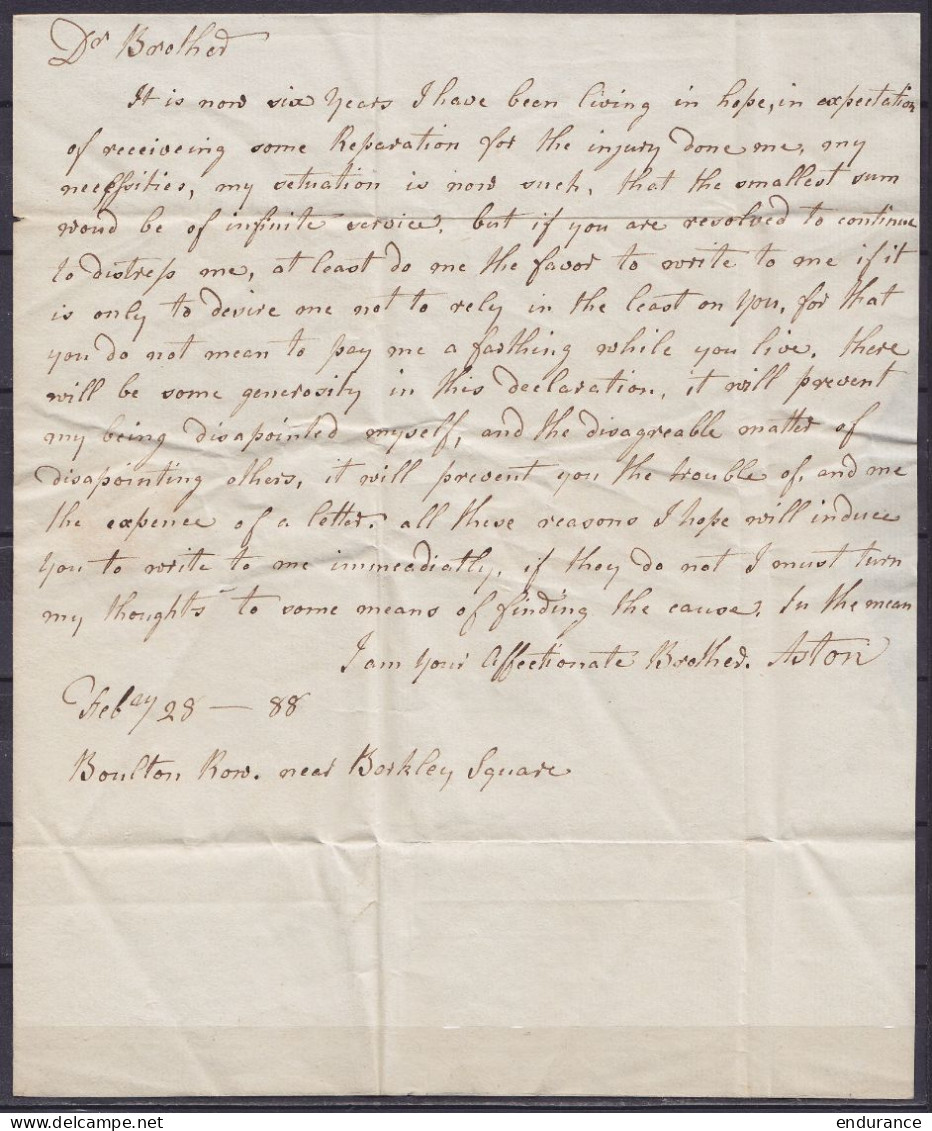 Dr Brother
It is now six years I have been living in hope, in expectation
of receiveing some Reparation for the injury done me, my
necessities, my setuation is now such, that the smallest sum
woud be of infinite service, but if you are resolved to continue
to distress me, at least do me the favor to write to me if it
is only to desire me not to rely in the least on you, for that
you do not mean to pay me a farthing while you live, there
will be some generosity in this declaration, it will prevent
my being disapointed myself, and the disagreable matter of
disapointing others, it will prevent you the trouble of, and me
the expence of a letter. all these reasons I hope will induce
you to write to me immeadiatly, if they do not I must turn
my thoughts to some means of finding the cause. In the mean
I am your Affectionate Brother. Aston
Febay 28 — 88
Boulton Row. near Barkley Square
endurance